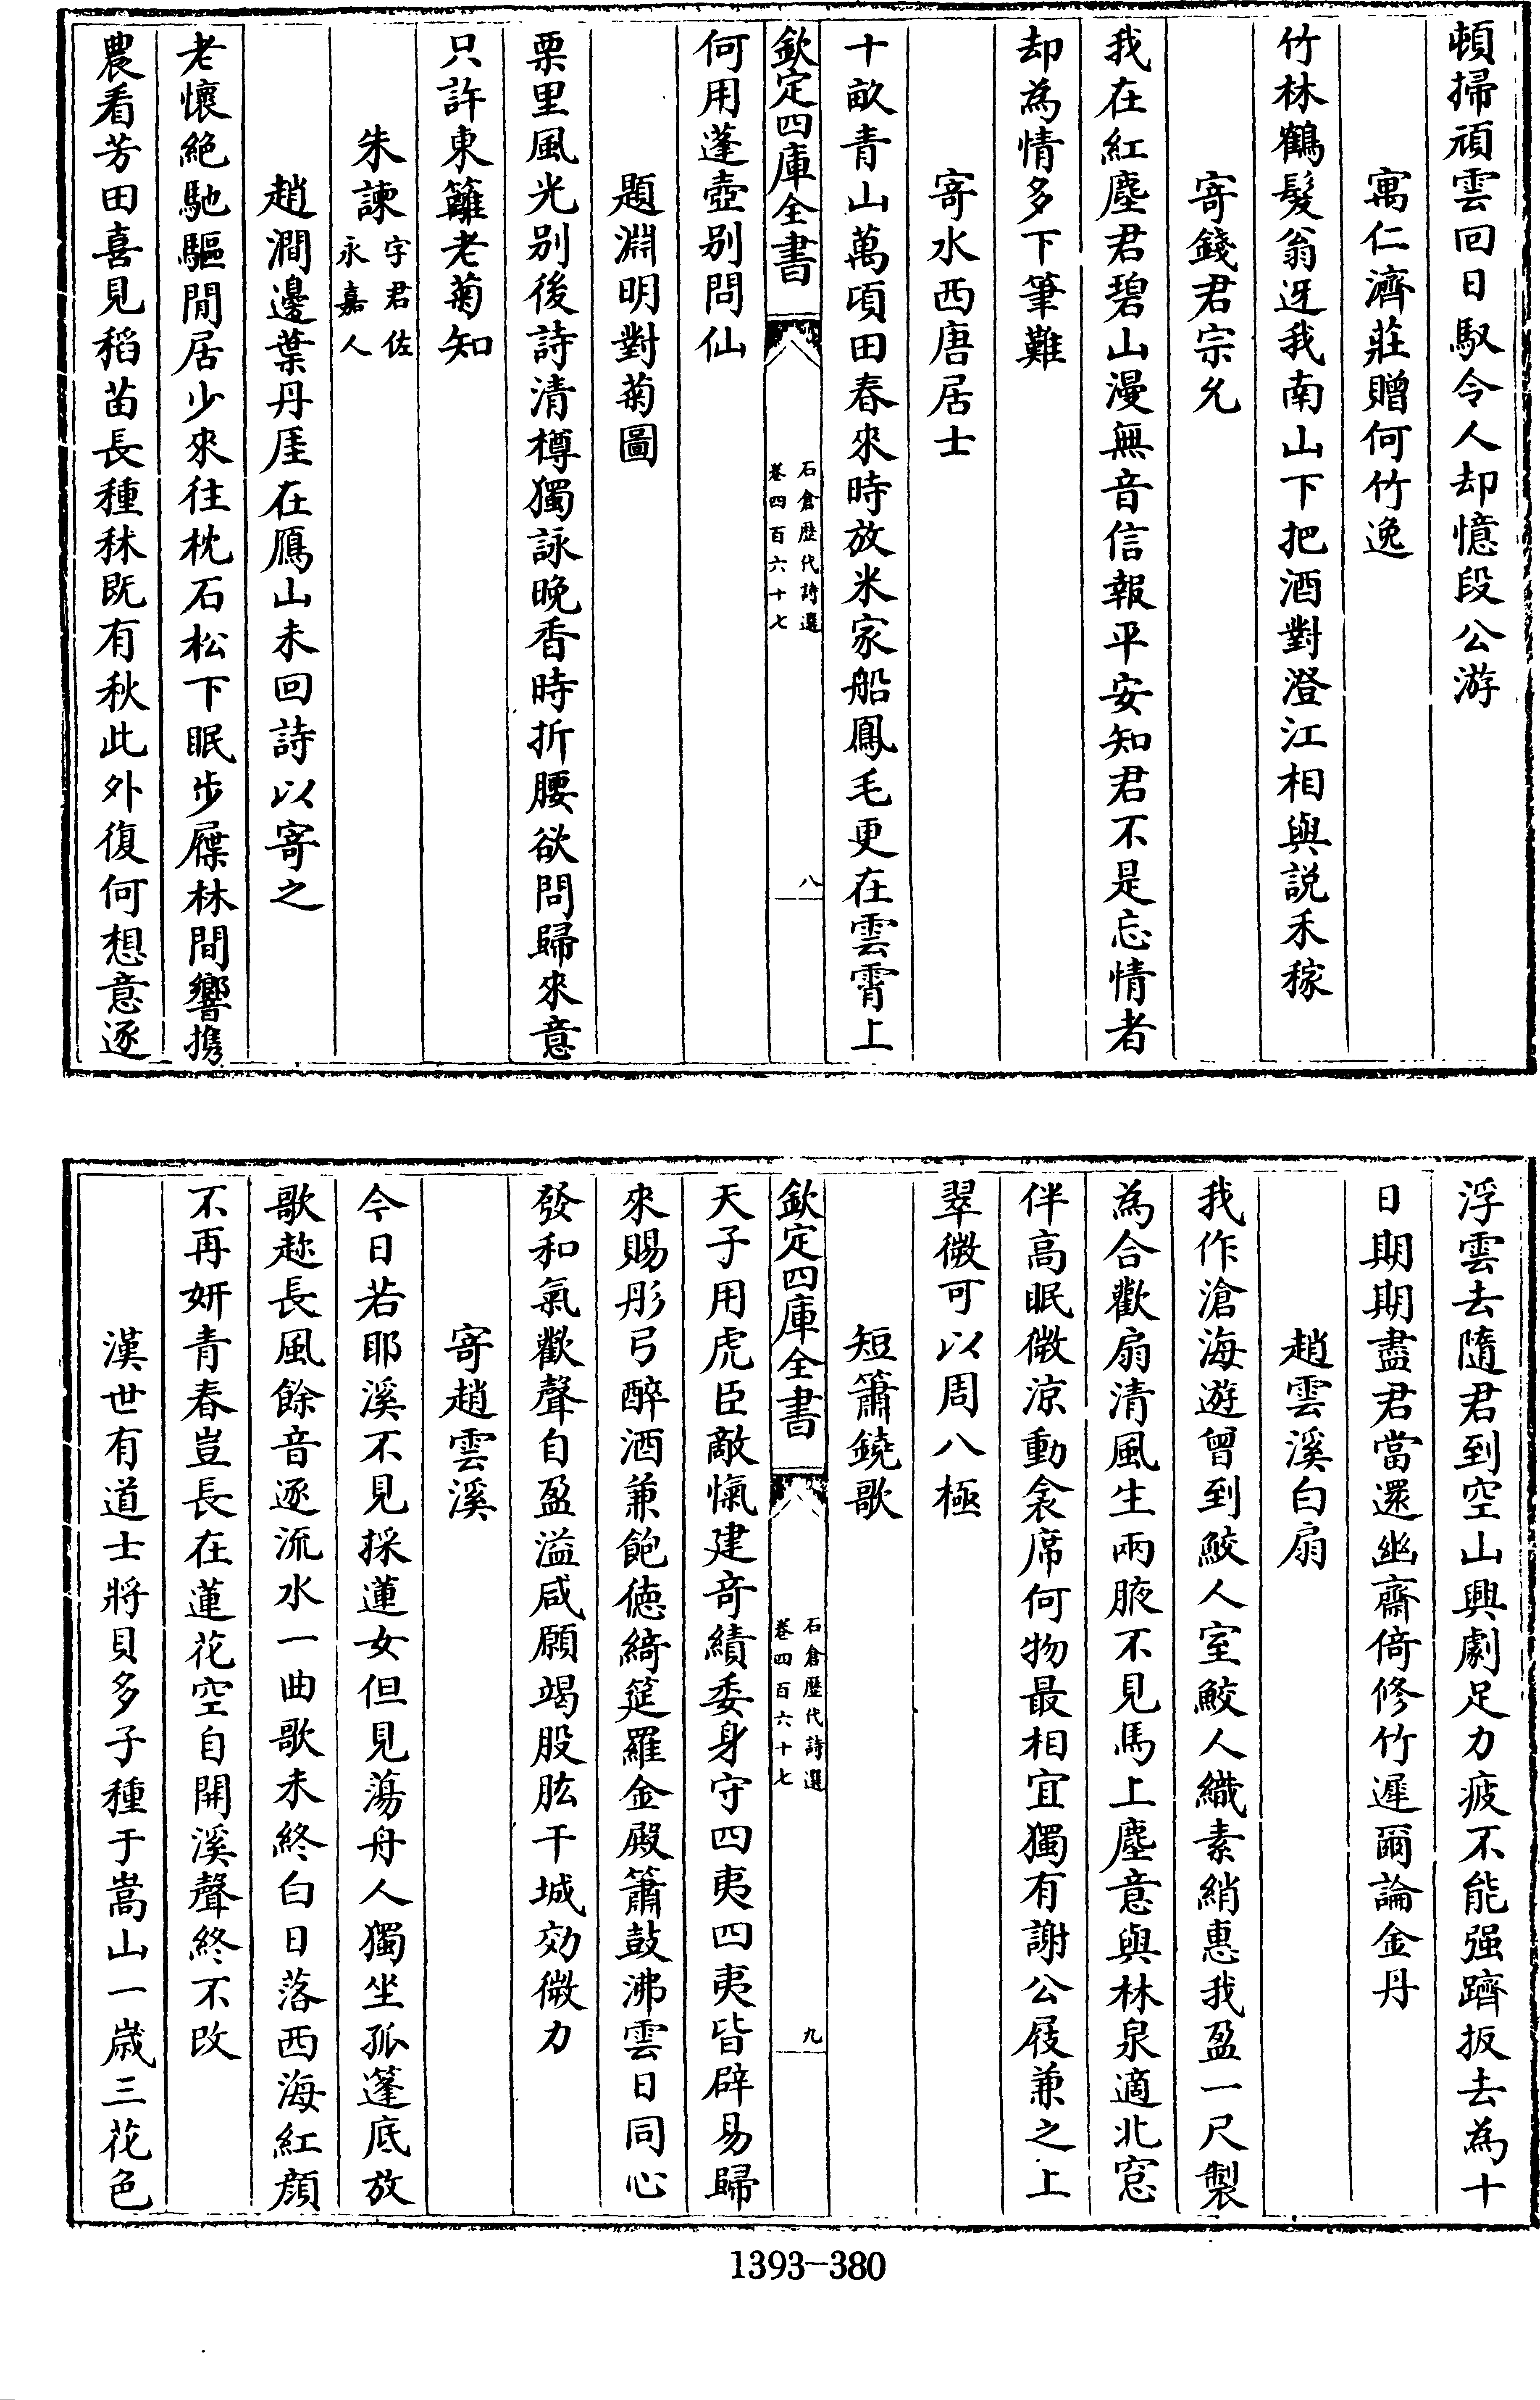 頓掃頑雲回日馭令人却憶段公游
寓仁濟莊贈何竹逸
竹林鶴髮翁迓我南山下把酒對澄江相與説禾稼
寄錢君宗允
我在紅塵君碧山漫無音信報平安知君不是忘情者
却為情多下筆難
寄水西唐居士
十畝青山萬頃田春來時放米家船鳳毛更在雲霄上
欽定四庫全書
石倉歴代詩選
卷四百六十七
八
何用蓬壺别問仙
題淵明對菊圖
栗里風光别後詩清樽獨詠晚香時折腰欲問歸來意
只許東籬老菊知
朱諫
字君佐
永嘉人
趙澗邊葉丹厓在鴈山未回詩以寄之
老懷絶馳驅閒居少來往枕石松下眠步屧林間響携
農看芳田喜見稻苗長種秫既有秋此外復何想意逐
浮雲去隨君到空山興劇足力疲不能强躋扳去為十
日期期盡君當還幽齋倚修竹遲爾論金丹
趙雲溪白扇
我作滄海遊曾到鮫人室鮫人織素綃惠我盈一尺製
為合歡扇清風生兩腋不見馬上塵意與林泉適北窓
伴高眠微涼動衾席何物最相宜獨有謝公屐兼之上
翠微可以周八極
短簫鐃歌
欽定四庫全書
石倉歴代詩選
卷四百六十七
九
天子用虎臣敵愾建竒績委身守四夷四夷皆辟易歸
來賜彤弓醉酒兼飽徳綺筵羅金殿簫鼓沸雲日同心
發和氣歡聲自盈溢咸願竭股肱干城効微力
寄趙雲溪
今日若耶溪不見採蓮女但見蕩舟人獨坐孤蓬底放
歌趂長風餘音逐流水一曲歌未終白日落西海紅顔
不再妍青春豈長在蓮花空自開溪聲終不改
漢世有道士將貝多子種于嵩山一歳三花色
1393-380